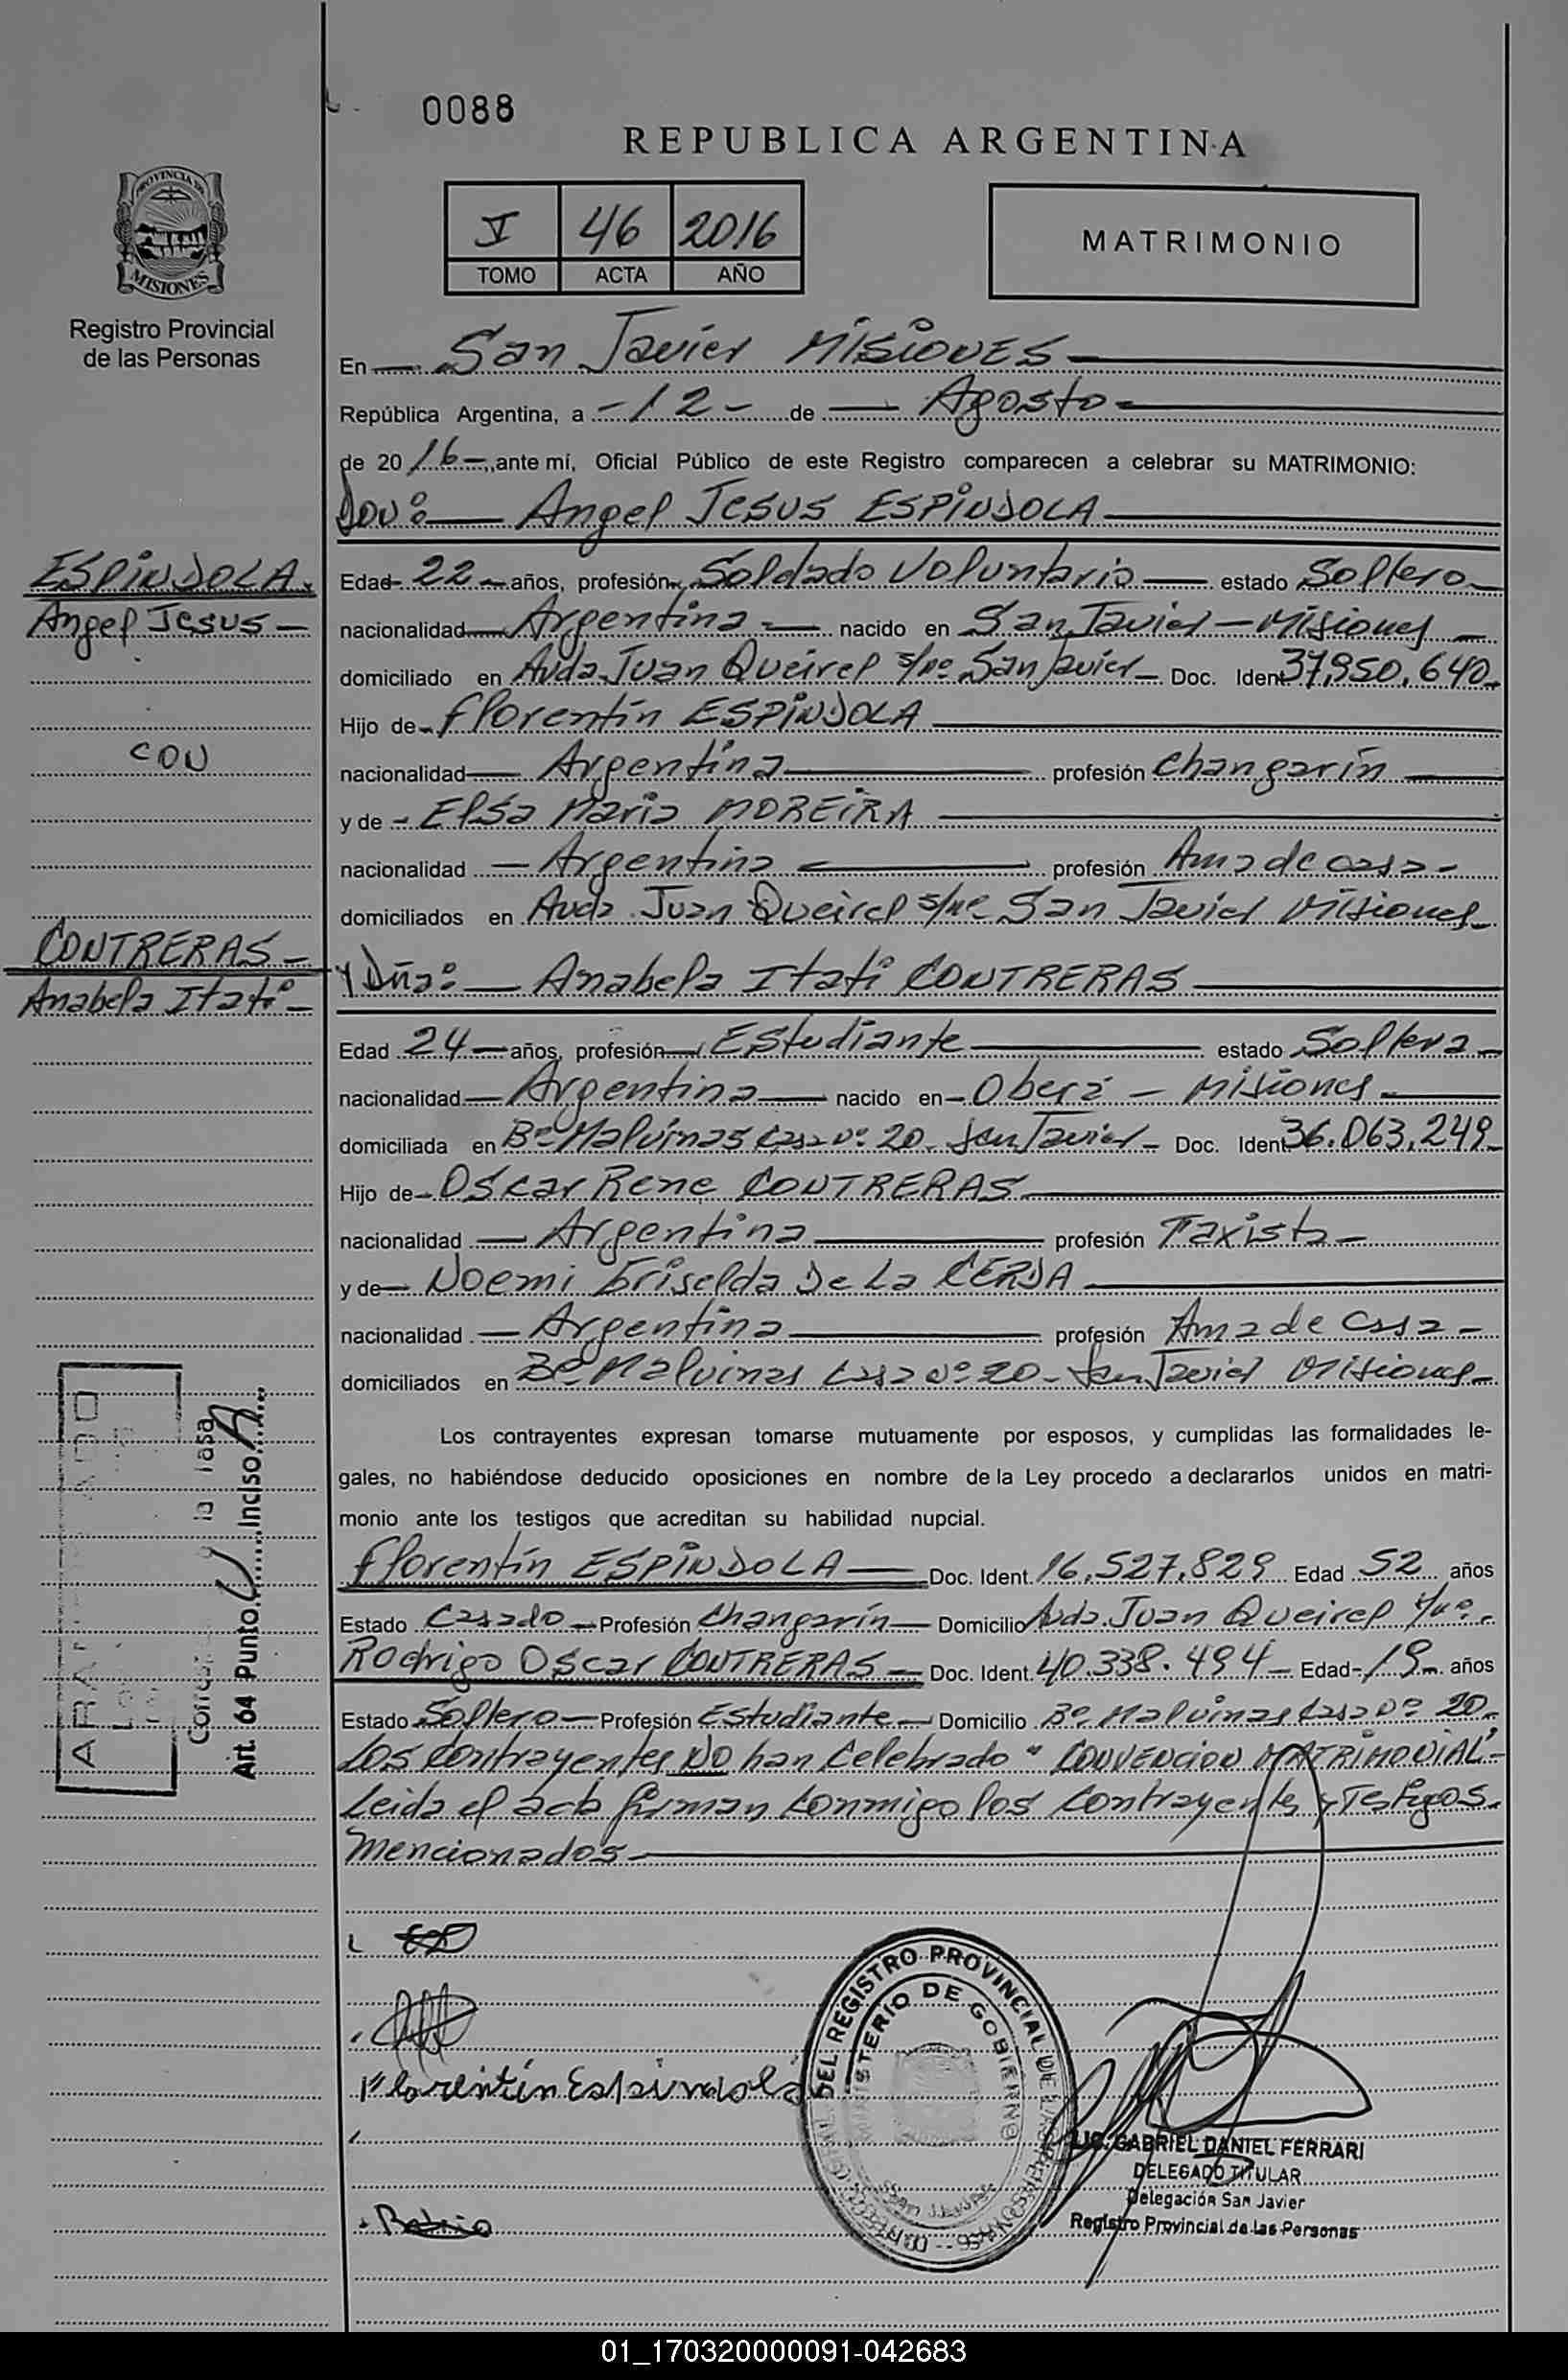 0088
REPUBLICA ARGENTINA
PROVINCIA DE
MISIONES
Registro Provincial
de las Personas
I 46 2016
TOMO ACTA AÑO
MATRIMONIO
En San Javier MISIONES
República Argentina, a -12- de Agosto
de 2016, ante mí, Oficial Público de este Registro comparecen a celebrar su MATRIMONIO:
Don: Angel Jesus ESPINDOLA
ESPINDOLA
Angel Jesus
Edad 22 años, profesión Soldado Voluntario estado Soltero
nacionalidad Argentina nacido en San Javier - Misiones
domiciliado en Avda. Juan Queirel s/nº San Javier Doc. Ident. 37.950.640
Hijo de Florentín ESPINDOLA
CON
nacionalidad Argentina profesión Changarín
y de Elsa Maria MOREIRA
nacionalidad Argentina profesión Ama de casa
domiciliados en Avda. Juan Queirel s/nº San Javier Misiones
CONTRERAS
Anabela Itatí
Y Dña: Anabela Itatí CONTRERAS
Edad 24 años, profesión Estudiante estado Soltera
nacionalidad Argentina nacido en Oberá - Misiones
domiciliada en Bº Malvinas Casa Nº 20 San Javier Doc. Ident. 36.063.249
Hijo de Oscar Rene CONTRERAS
nacionalidad Argentina profesión Taxista
y de Noemi Griselda De La CERDA
nacionalidad Argentina profesión Ama de Casa
domiciliados en Bº Malvinas Casa Nº 20 - San Javier Misiones
Los contrayentes expresan tomarse mutuamente por esposos, y cumplidas las formalidades le-
gales, no habiéndose deducido oposiciones en nombre de la Ley procedo a declararlos unidos en matri-
monio ante los testigos que acreditan su habilidad nupcial.
Florentín ESPINDOLA Doc. Ident. 16.527.829 Edad 52 años
Estado Casado Profesión Changarín Domicilio Avda. Juan Queirel s/nº
Rodrigo Oscar CONTRERAS Doc. Ident. 40.338.494 Edad 19 años
Estado Soltero Profesión Estudiante Domicilio Bº Malvinas Casa Nº 20
Los Contrayentes NO han Celebrado "CONVENCION MATRIMONIAL"
Leida el acta firman Conmigo los Contrayentes y Testigos
mencionados
la Tasa
Art. 64 Punto Inciso A
Florentín Espindola
DEL REGISTRO PROVINCIAL DE LAS PERSONAS
MINISTERIO DE GOBIERNO
San Javier
LIC. GABRIEL DANIEL FERRARI
DELEGADO TITULAR
Delegación San Javier
Registro Provincial de las Personas
01_170320000091-042683